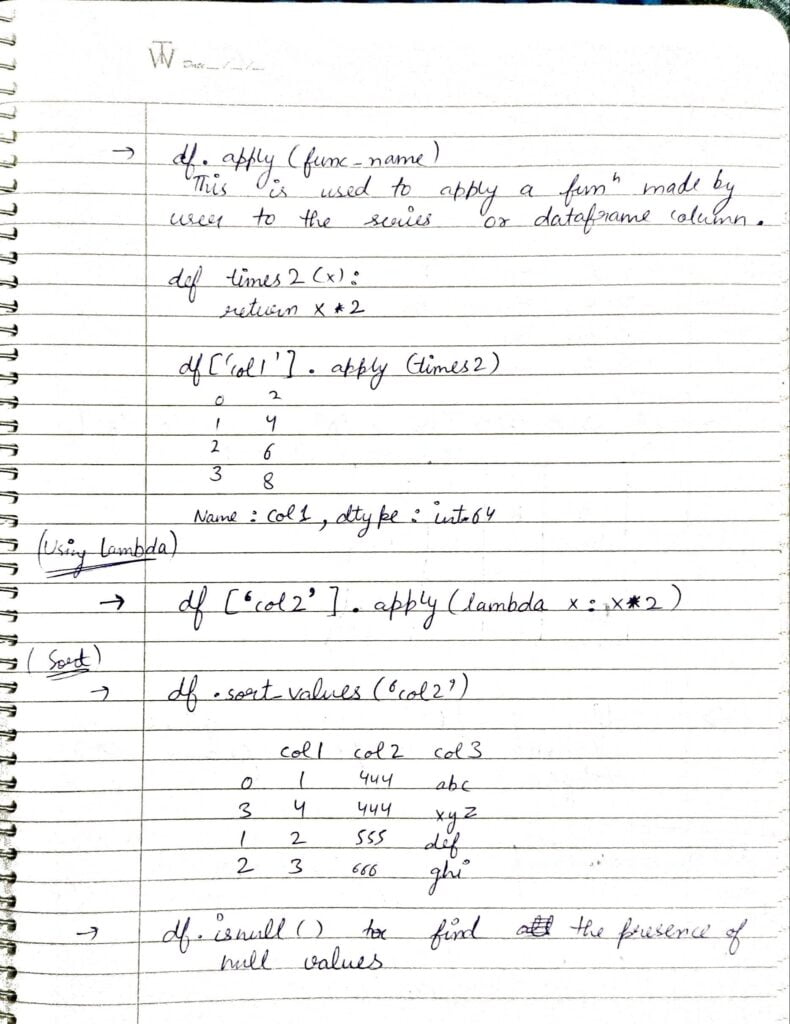 TW Date __/__/__
→ df. apply (func-name)
This is used to apply a funⁿ made by
user to the series or dataframe column.
def times2 (x):
return x * 2
df ['col1']. apply (times2)
0 2
1 4
2 6
3 8
Name : col1, dtype : int64
(Using Lambda)
→ df ['col2']. apply (lambda x : x*2)
(Sort)
→ df .sort_values ('col2')
col1 col2 col3
0 1 444 abc
3 4 444 xyz
1 2 555 def
2 3 666 ghi
→ df. isnull () to find the presence of
null values